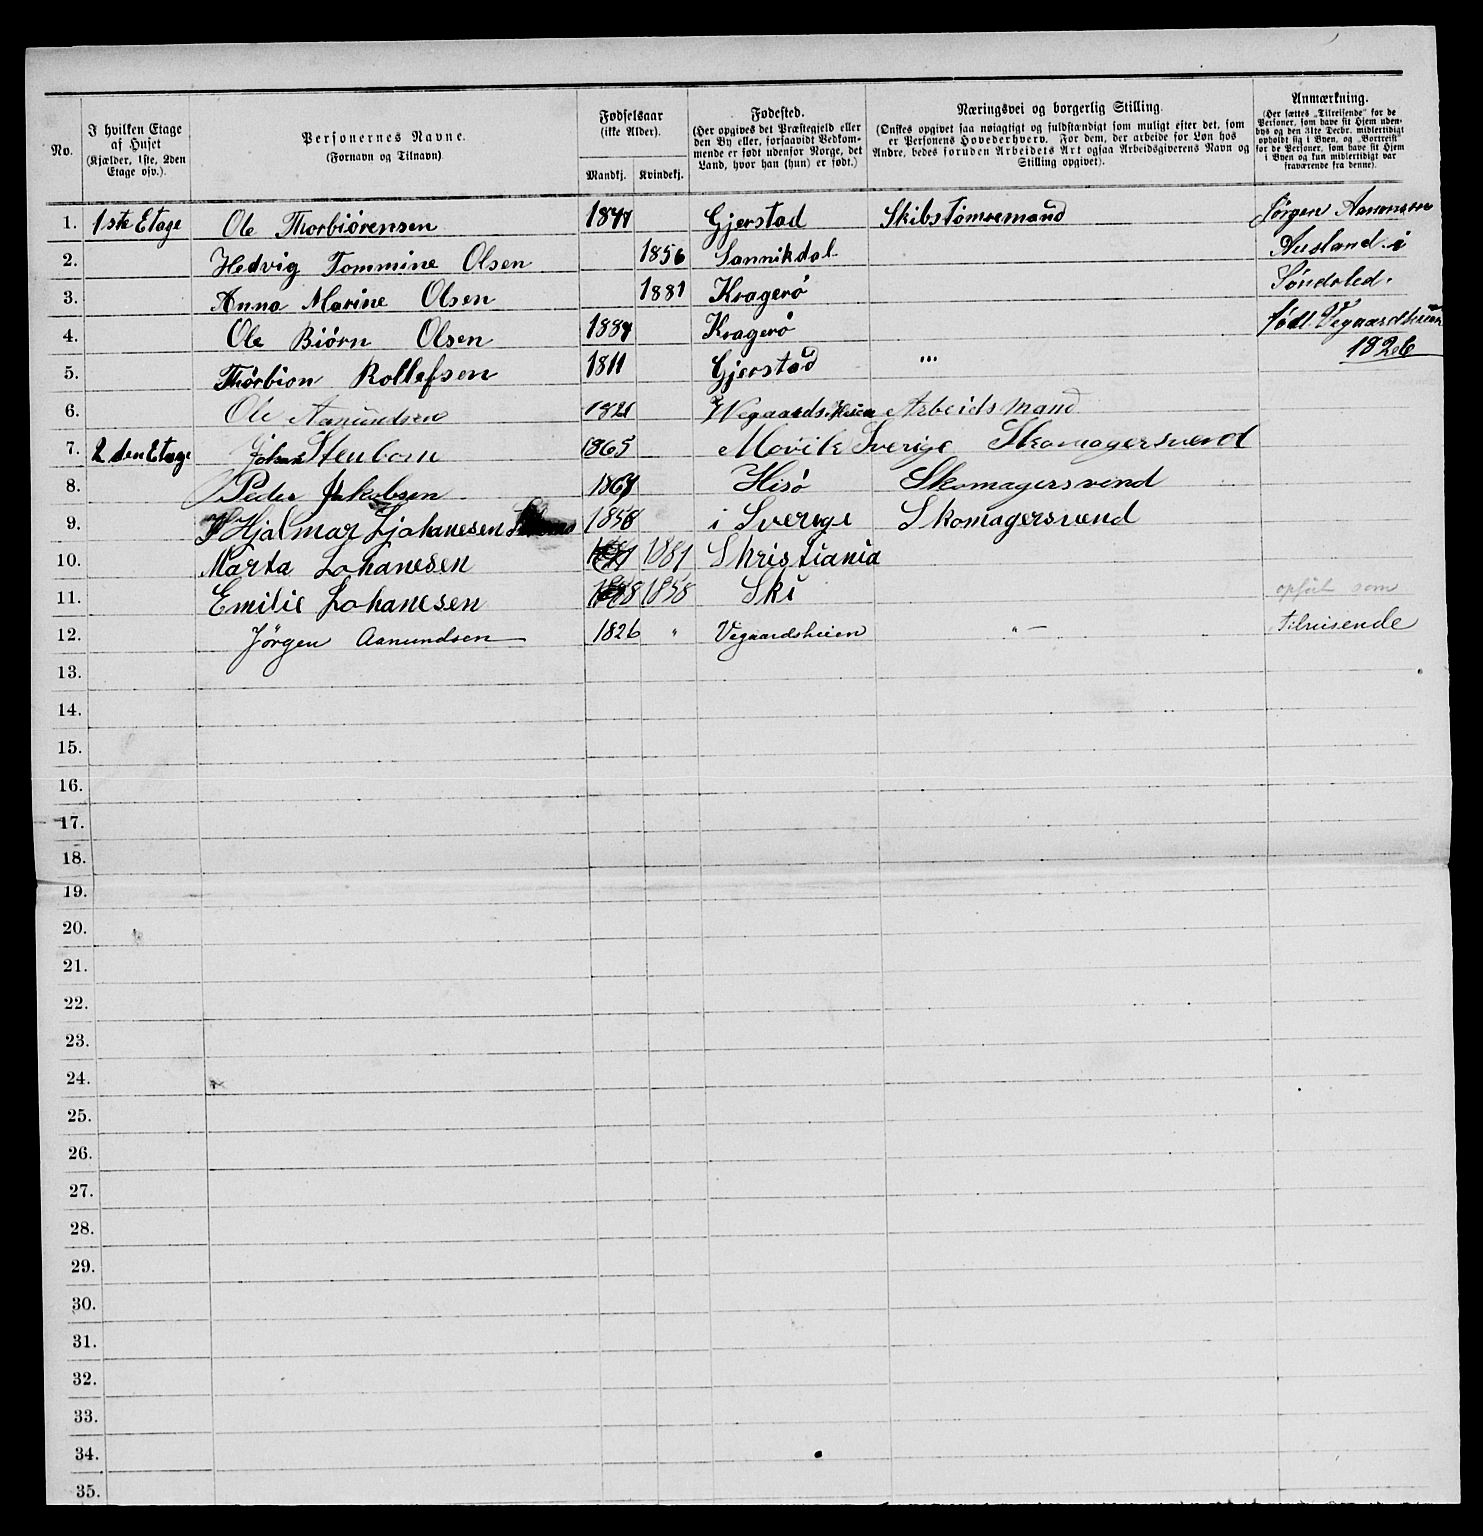 No.
I hvilken Etage af Huset (Kjælder, 1ste, 2den Etage osv.).
Personernes Navne. (Fornavn og Tilnavn)
Fødselsaar (ikke Alder).
Mandkj. Kvindekj.
Fødested. (Her opgives det Præstegjeld eller den By eller, forsaavidt Vedkommende er født udenfor Norge, det Land, hvor han (hun) er født.)
Næringsvei og borgerlig Stilling. (Ønskes opgivet saa nøiagtigt og fuldstændigt som muligt efter det, som er Personens Hovederhverv. For dem, der arbeide for Løn hos Andre, bedes foruden Arbeidets Art ogsaa Arbeidsgiverens Navn og Stilling opgivet).
Anmærkning. (Her sættes „Tilreisende" for de Personer, som have sit Hjem udenbys og den 31te Decbr. midlertidigt opholdt sig i Byen, og „Bortreist" for de Personer, som have sit Hjem i Byen og kun midlertidigt var fraværende fra denne).
1. 1ste Etage Ole Thorbiörensen 1847 Gjerstad Skibstömremand Jörgen
2. Hedvig Tommine Olsen 1856 Sannikdal Ausland i
3. Anna Marine Olsen 1881 Kragerö Söndeled.
4. Ole Biörn Olsen 1884 Kragerö født Vegaardsheien
5. Thorbion Rollefsen 1811 Gjerstad "' 1826
6. Ole Aamundsen 1821 Wegaardsheien Arbeidsmand
7. 2den Etage Johan Stenborn 1865 Sverige Skomagersvend
8. Peder Jakobsen Hisö Skomagersvend
9. Hjalmar Johanesen 1858 i Sverige Skomagersvend
10. Marta Johanesen 1881 Khristiania
11. Emilie Johanesen 1858 Ski opført som
12. Jörgen Aamundsen 1826 " Vegaardsheien "— Tilreisende
13.
14.
15.
16.
17.
18.
19.
20.
21.
22.
23.
24.
25.
26.
27.
28.
29.
30.
31.
32.
33.
34.
35.